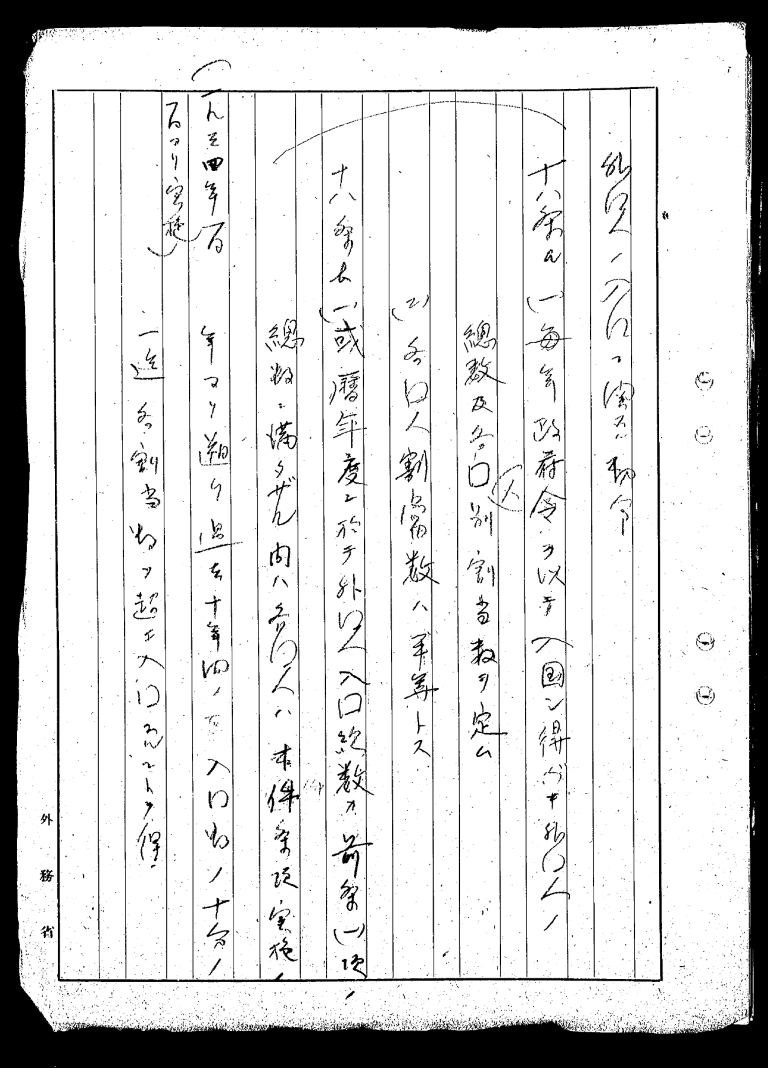 外口人ノ入口ニ関スル勅令
十八条a (一)毎年政府令ヲ以テ入国シ得ベキ外口人ノ
総数及各口(人)別割当数ヲ定ム
(二)各口人割当数ハ平等トス
十八条b (一)或暦年度ニ於テ外口人入口総数ガ前条(一)項ノ
総数ニ満タザル内ハ各口人ハ本件条項実施ノ
年ヨリ遡リ過去十年間ノ 入口数ノ十分ノ
一迄各割当数ヲ超エ入口スルコトヲ得
(一九三四年 月
ヨリ実施)
外務省